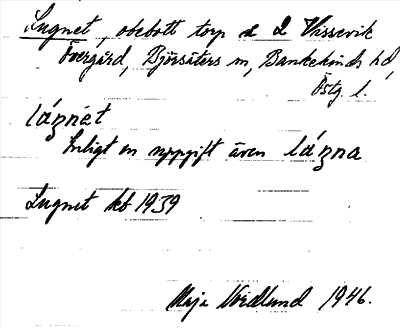 Lugnet, obebott torp å 2 Vissevik
Övergård, Björsäters sn, Bankekinds hd,
Östg. l.
láŋnèt
Enligt en uppgift även láŋna
Lugnet kb 1939
Maja Nordlund 1946.